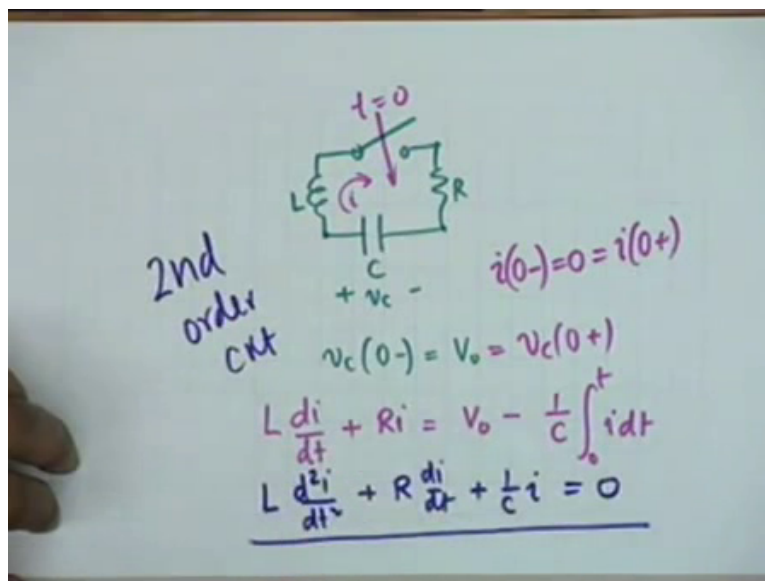 t=0
L
i
R
C
+ v_c -
i(0-)=0=i(0+)
2nd
order
ckt
v_c(0-) = V_0 = v_c(0+)
L di/dt + Ri = V_0 - 1/C ∫_0^t i dt
L d²i/dt² + R di/dt + 1/C i = 0